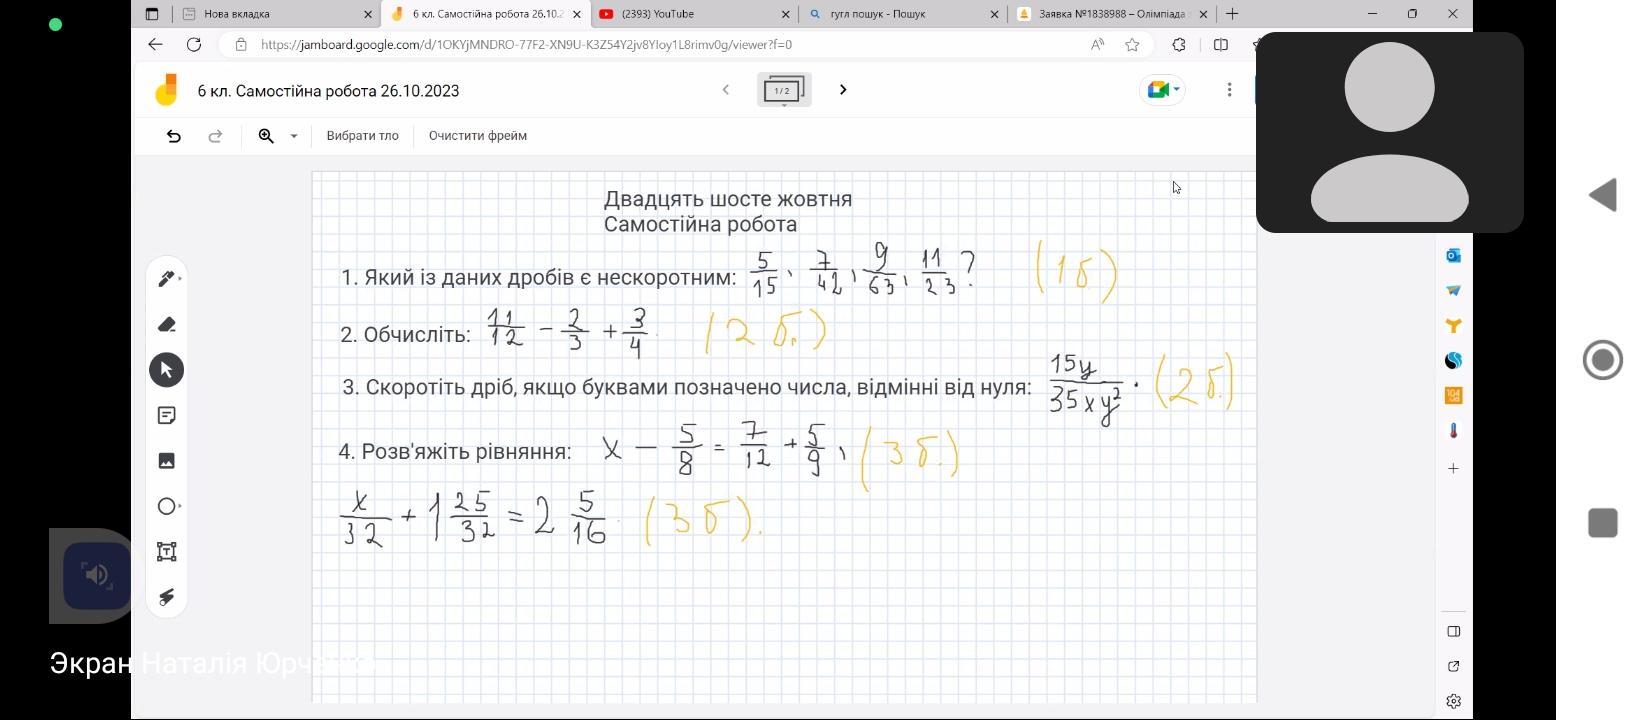 Нова вкладка
6 кл. Самостійна робота 26.10.2
(2393) YouTube
гугл пошук - Пошук
Заявка №1838988 – Олімпіада
https://jamboard.google.com/d/1OKYjMNDRO-77F2-XN9U-K3Z54Y2jv8YIoy1L8rimv0g/viewer?f=0
6 кл. Самостійна робота 26.10.2023
1 / 2
Вибрати тло
Очистити фрейм
Двадцять шосте жовтня
Самостійна робота
1. Який із даних дробів є нескоротним: 5/15, 7/42, 9/63, 11/23? (1 б.)
2. Обчисліть: 11/12 - 2/3 + 3/4. (2 б.)
3. Скоротіть дріб, якщо буквами позначено числа, відмінні від нуля: 15y/35xy². (2 б.)
4. Розв'яжіть рівняння: x - 5/8 = 7/12 + 5/9, (3 б.)
x/32 + 1 25/32 = 2 5/16. (3 б).
Экран Наталія
104